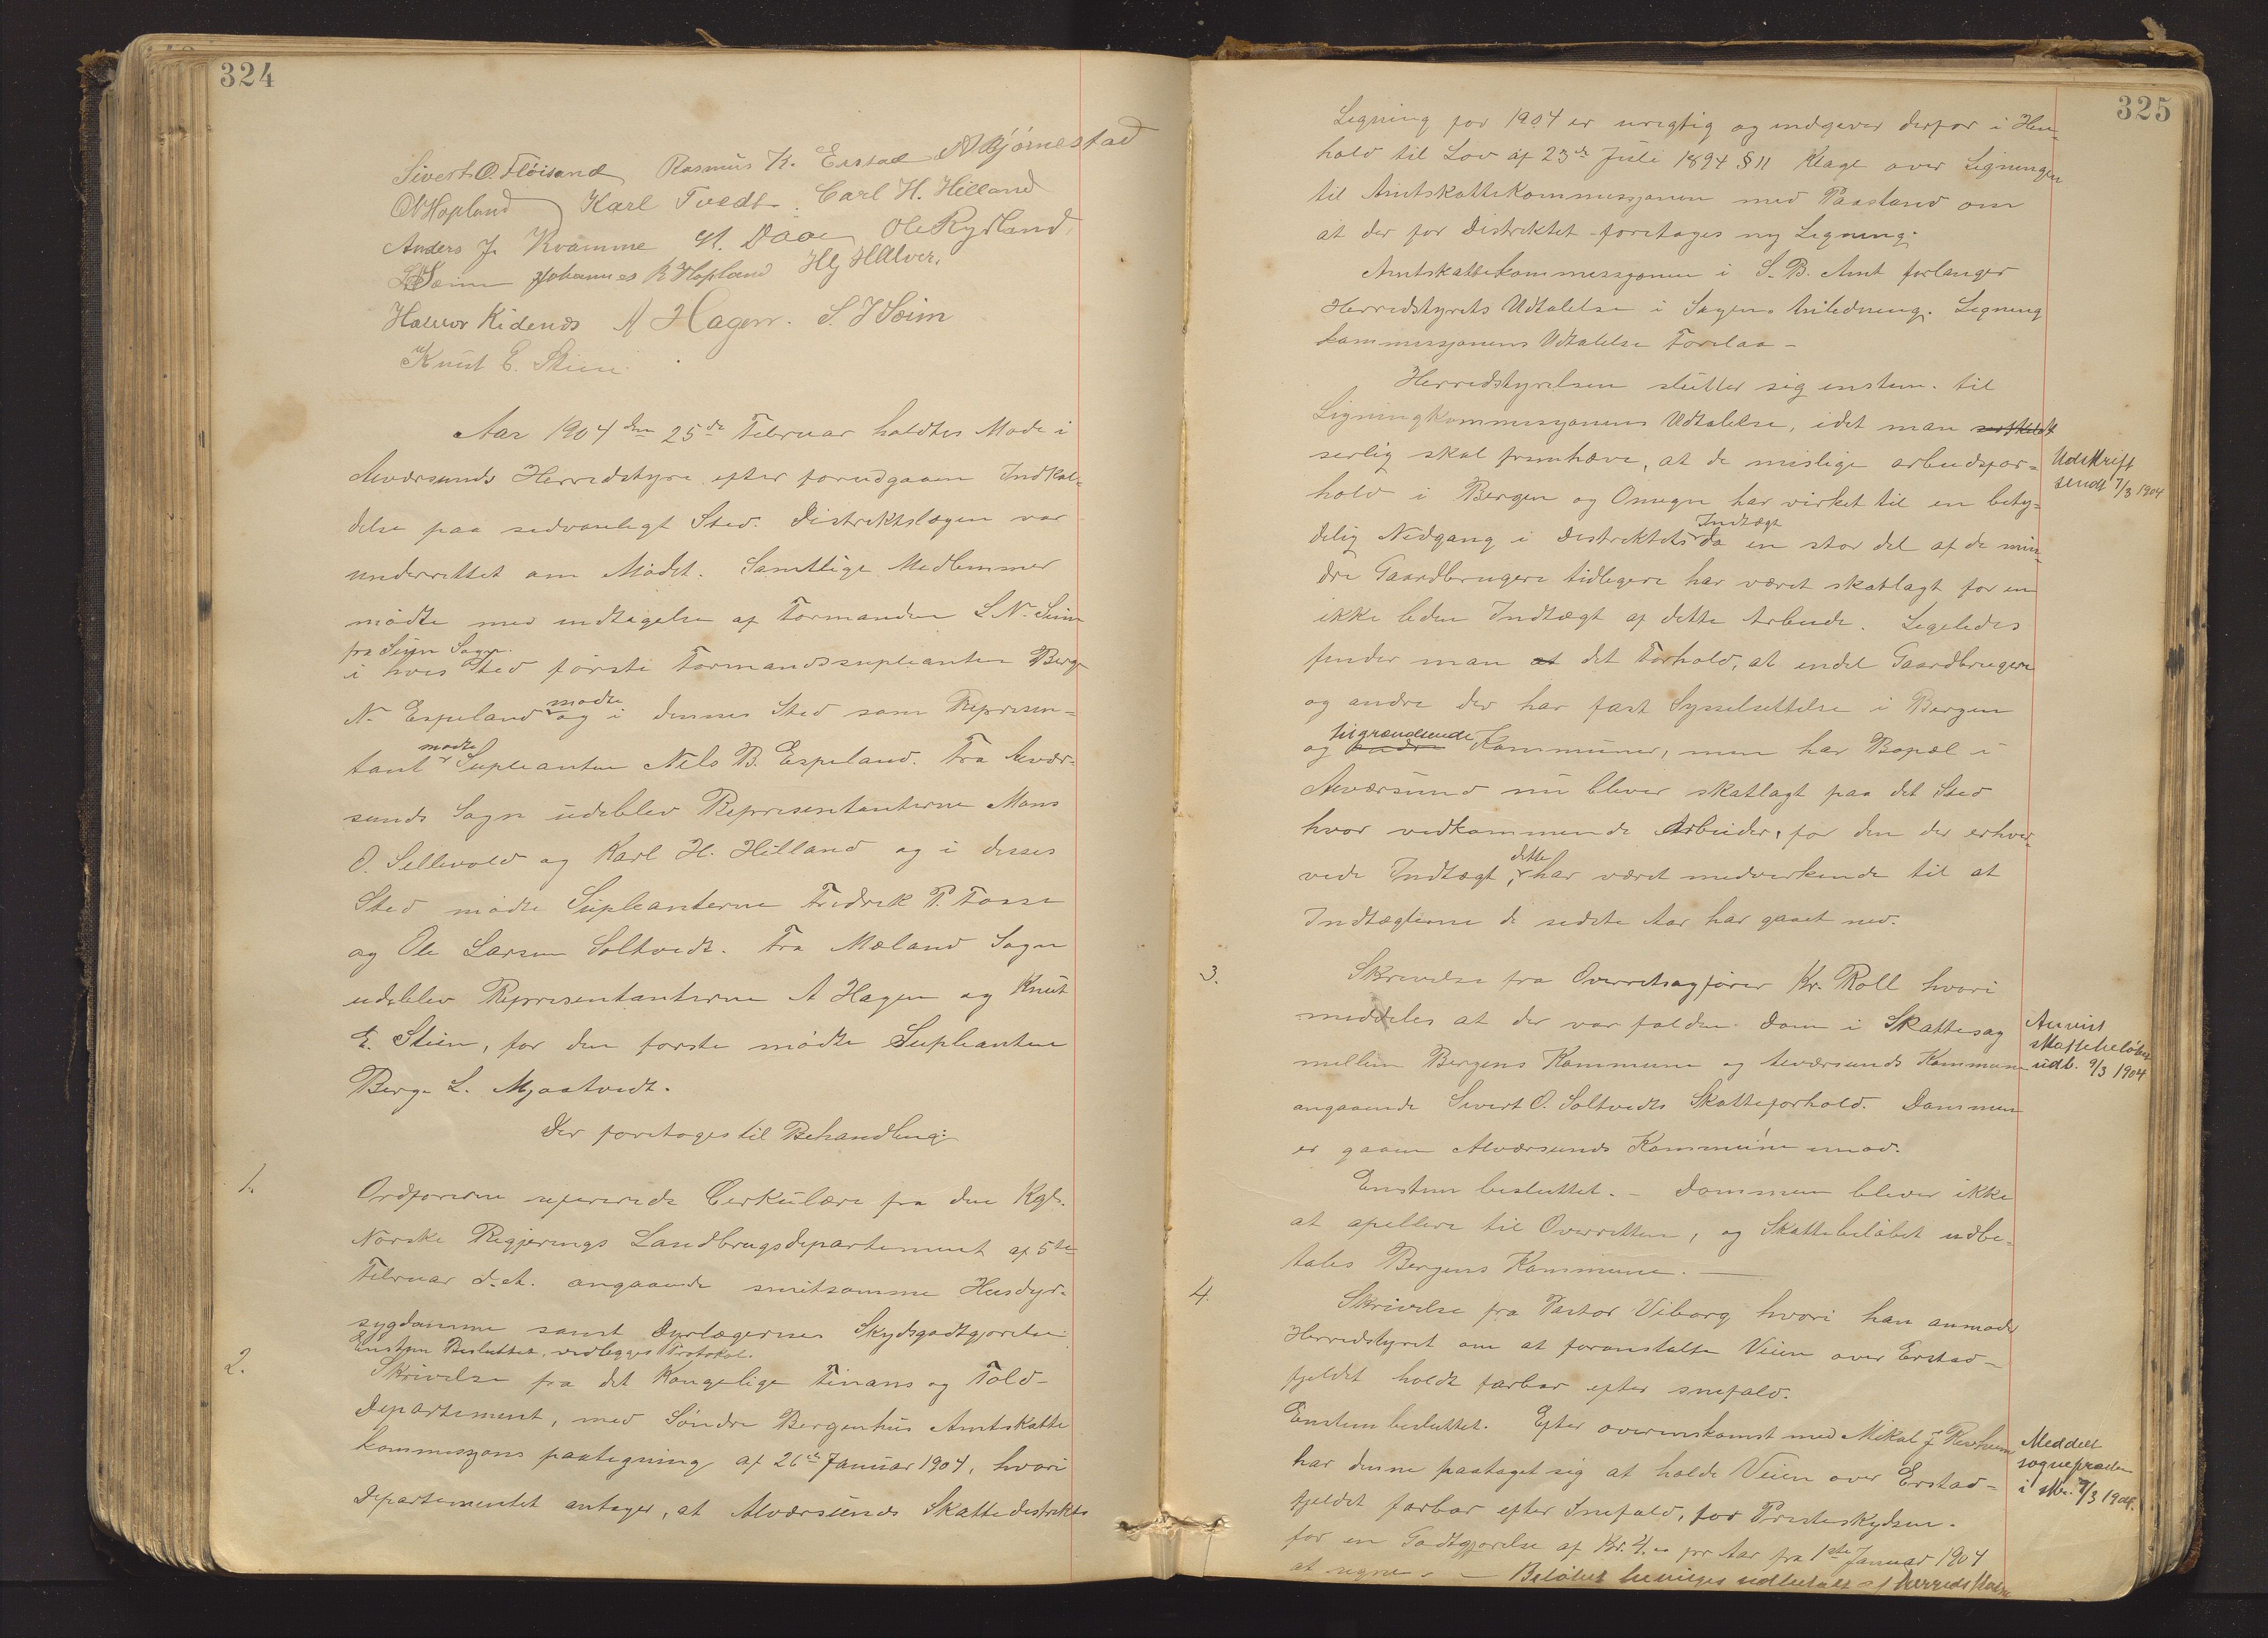 324
Sivert O. Fløisand Rasmus K. Erstad N Bjørnestad
O Hopland Karl Tvedt. Carl H. Hilland
Anders J. Kvamme M. Daae Ole Rydland
Johannes R Hopland HHalver.
Halvor Kidends A Hagen. S. J Seim
Knut E. Stien
Aar 1904 den 25de Februar holdtes Møde i
Alversunds Herredstyre efter forudgaaen Indkal-
delse paa sedvanlegt Sted. Distriktslægen var
underrettet om Mødet. Samtlige Medlemmer
mødte med undtagelse af Formanden L N. Seim
fra Seim Sogn.
i hves Sted første Formandssupleanten Berge
N. Espeland mødte og i dennes Sted som Represen-
tant mødte Supleanten Nils B. Espeland. Fra Alver-
sunds Sogn udeblev Representanterne Mons
O. Sellevold og Karl H. Hilland og i desses
Sted mødte Supleanterne Fredrik P. Fosse
og Ole Larsen Soltvedt. Fra Meland Sogn
udeblev Representanterne A Hagen og Knut
E. Stien, for den første mødte Supleanten
Berge L. Mjaatvedt.
Der foretoges til Behandling:
1. Ordføreren refererede Cerkulære fra den Kgl.
Norske Regjerings Landbrugsdepartement af 5te
Februar d.A. angaaende smitsomme Husdyr-
sygdomme samt Dyrlægernes Skydsgodtgjørelse
Enstem Besluttet. vedlegges Protokol.
2. Skrivelse fra det Kongelige Finans og Told-
Departement, med Søndre Bergenhus Amtskatte
kommissjons paategning af 26de Januar 1904, hvori
Departementet antager, at Alversunds Skattedistrikts
325
Ligning for 1904 er urigtig og indgiver derfor i Hen-
hold til Lov af 23de Juli 1894 § 11 Klage over Ligningen
til Amtskattekommissjonen med Paastand om
at der for Distriktet foretages ny Ligning.
Amtskattekommissjonen i S. B. Amt forlanger
Herredstyrets Udtalelse i Sagens Anledning. Ligning
kommissjonens Udtalelse Forelaa –
Herredstyrelsen slutter sig enstem. til
Ligningkommissjonens Udtalelse, idet man
serlig skal fremhæve, at de mislige arbeidsfor-
hold i Bergen og Omegn har virket til en bety-
delig Nedgang i Distriktets Indtægt da en stor del af de min-
dre Gaardbrugere tidligere har været skatlagt for en
ikke liden Indtægt af dette Arbeide. Ligeledes
finder man at det Forhold, at endel Gaardbrugere
og andre der har fast Sysselsettelse i Bergen
og andre tilgrændsende Kommuner, men har Bopæl i
Alversund nu bliver skatlagt paa det Sted
hvor vedkommende Arbeider, for den der erhver-
vede Indtægt, dette har været medverkende til at
Indtægterne de sidste Aar har gaaet ned.
Udskrift
sendt 7/3 1904
3. Skrivelse fra Overretsagfører Kr. Roll hvori
meddeles at der var falden Dom i Skattesag
mellem Bergens Kommune og Alversunds Kommune
angaaende Sivert O. Soltvedts Skatteforhold. Dommen
er gaaen Alversunds Kommune imod.
Enstem besluttet. – Dommen bliver ikke
at apellere til Overretten, og Skattebeløbet udbe-
tales Bergens Kommune. –
Anvist
skattebeløbet
udb. 9/3 1904
4. Skrivelse fra Pastor Viborg hvori han anmoder
Herredstyret om at foranstalte Veien over Erstad-
fjeldet holdt farbar efter snefald.
Enstem besluttet. Efter overenskomst med Mikal J
har denne paataget sig at holde Veien over Erstad-
fjeldet farbar efter Snefald, for Presteskydsen.
for en Godtgjørelse af Kr. 4.00 pr Aar fra 1ste Januar 1904
at regne. – Beløbet bevilges udbetalt af herredskassen
Meddelt
sognepresten
i skr. 7/3 1904.